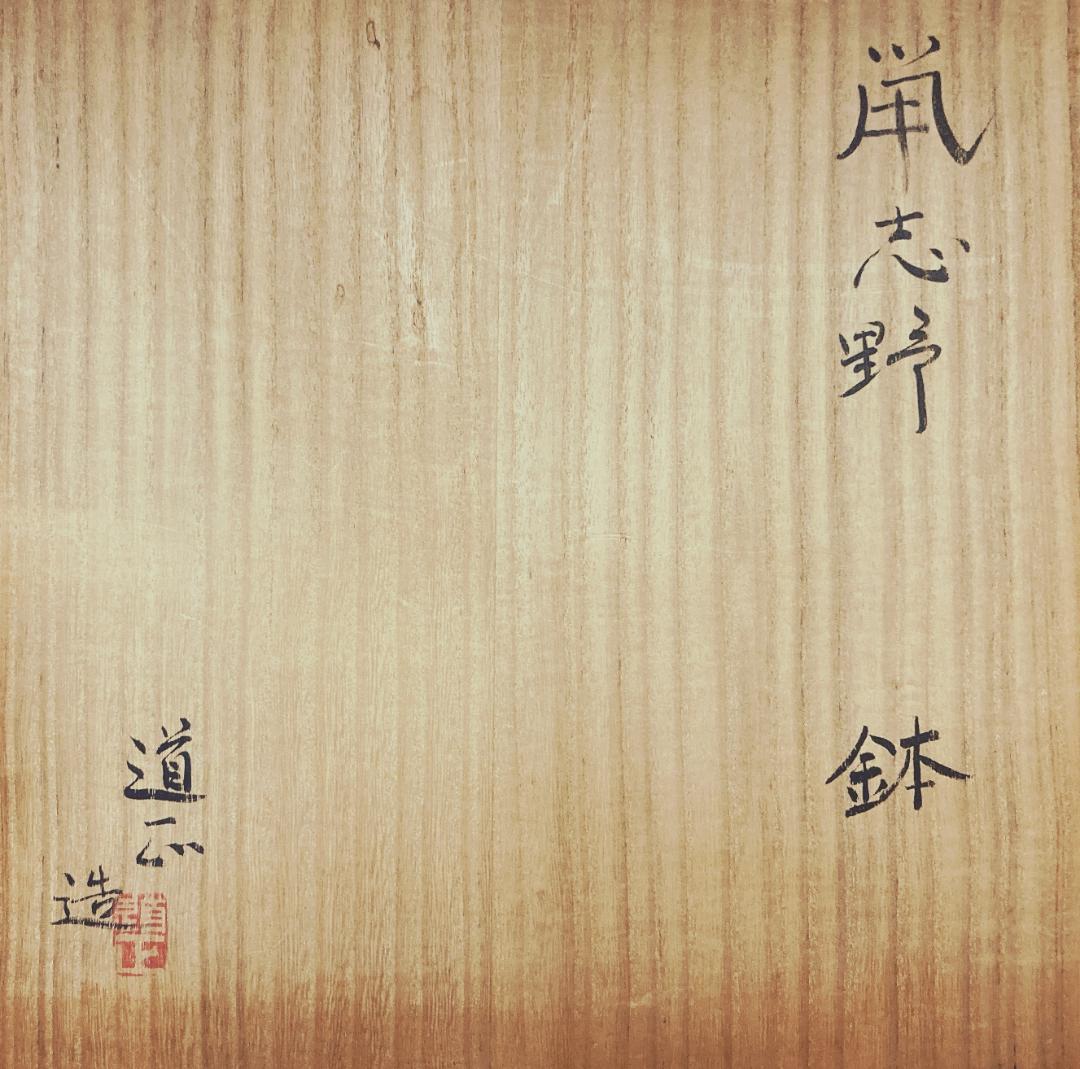 鼡志野 鉢
道正
造